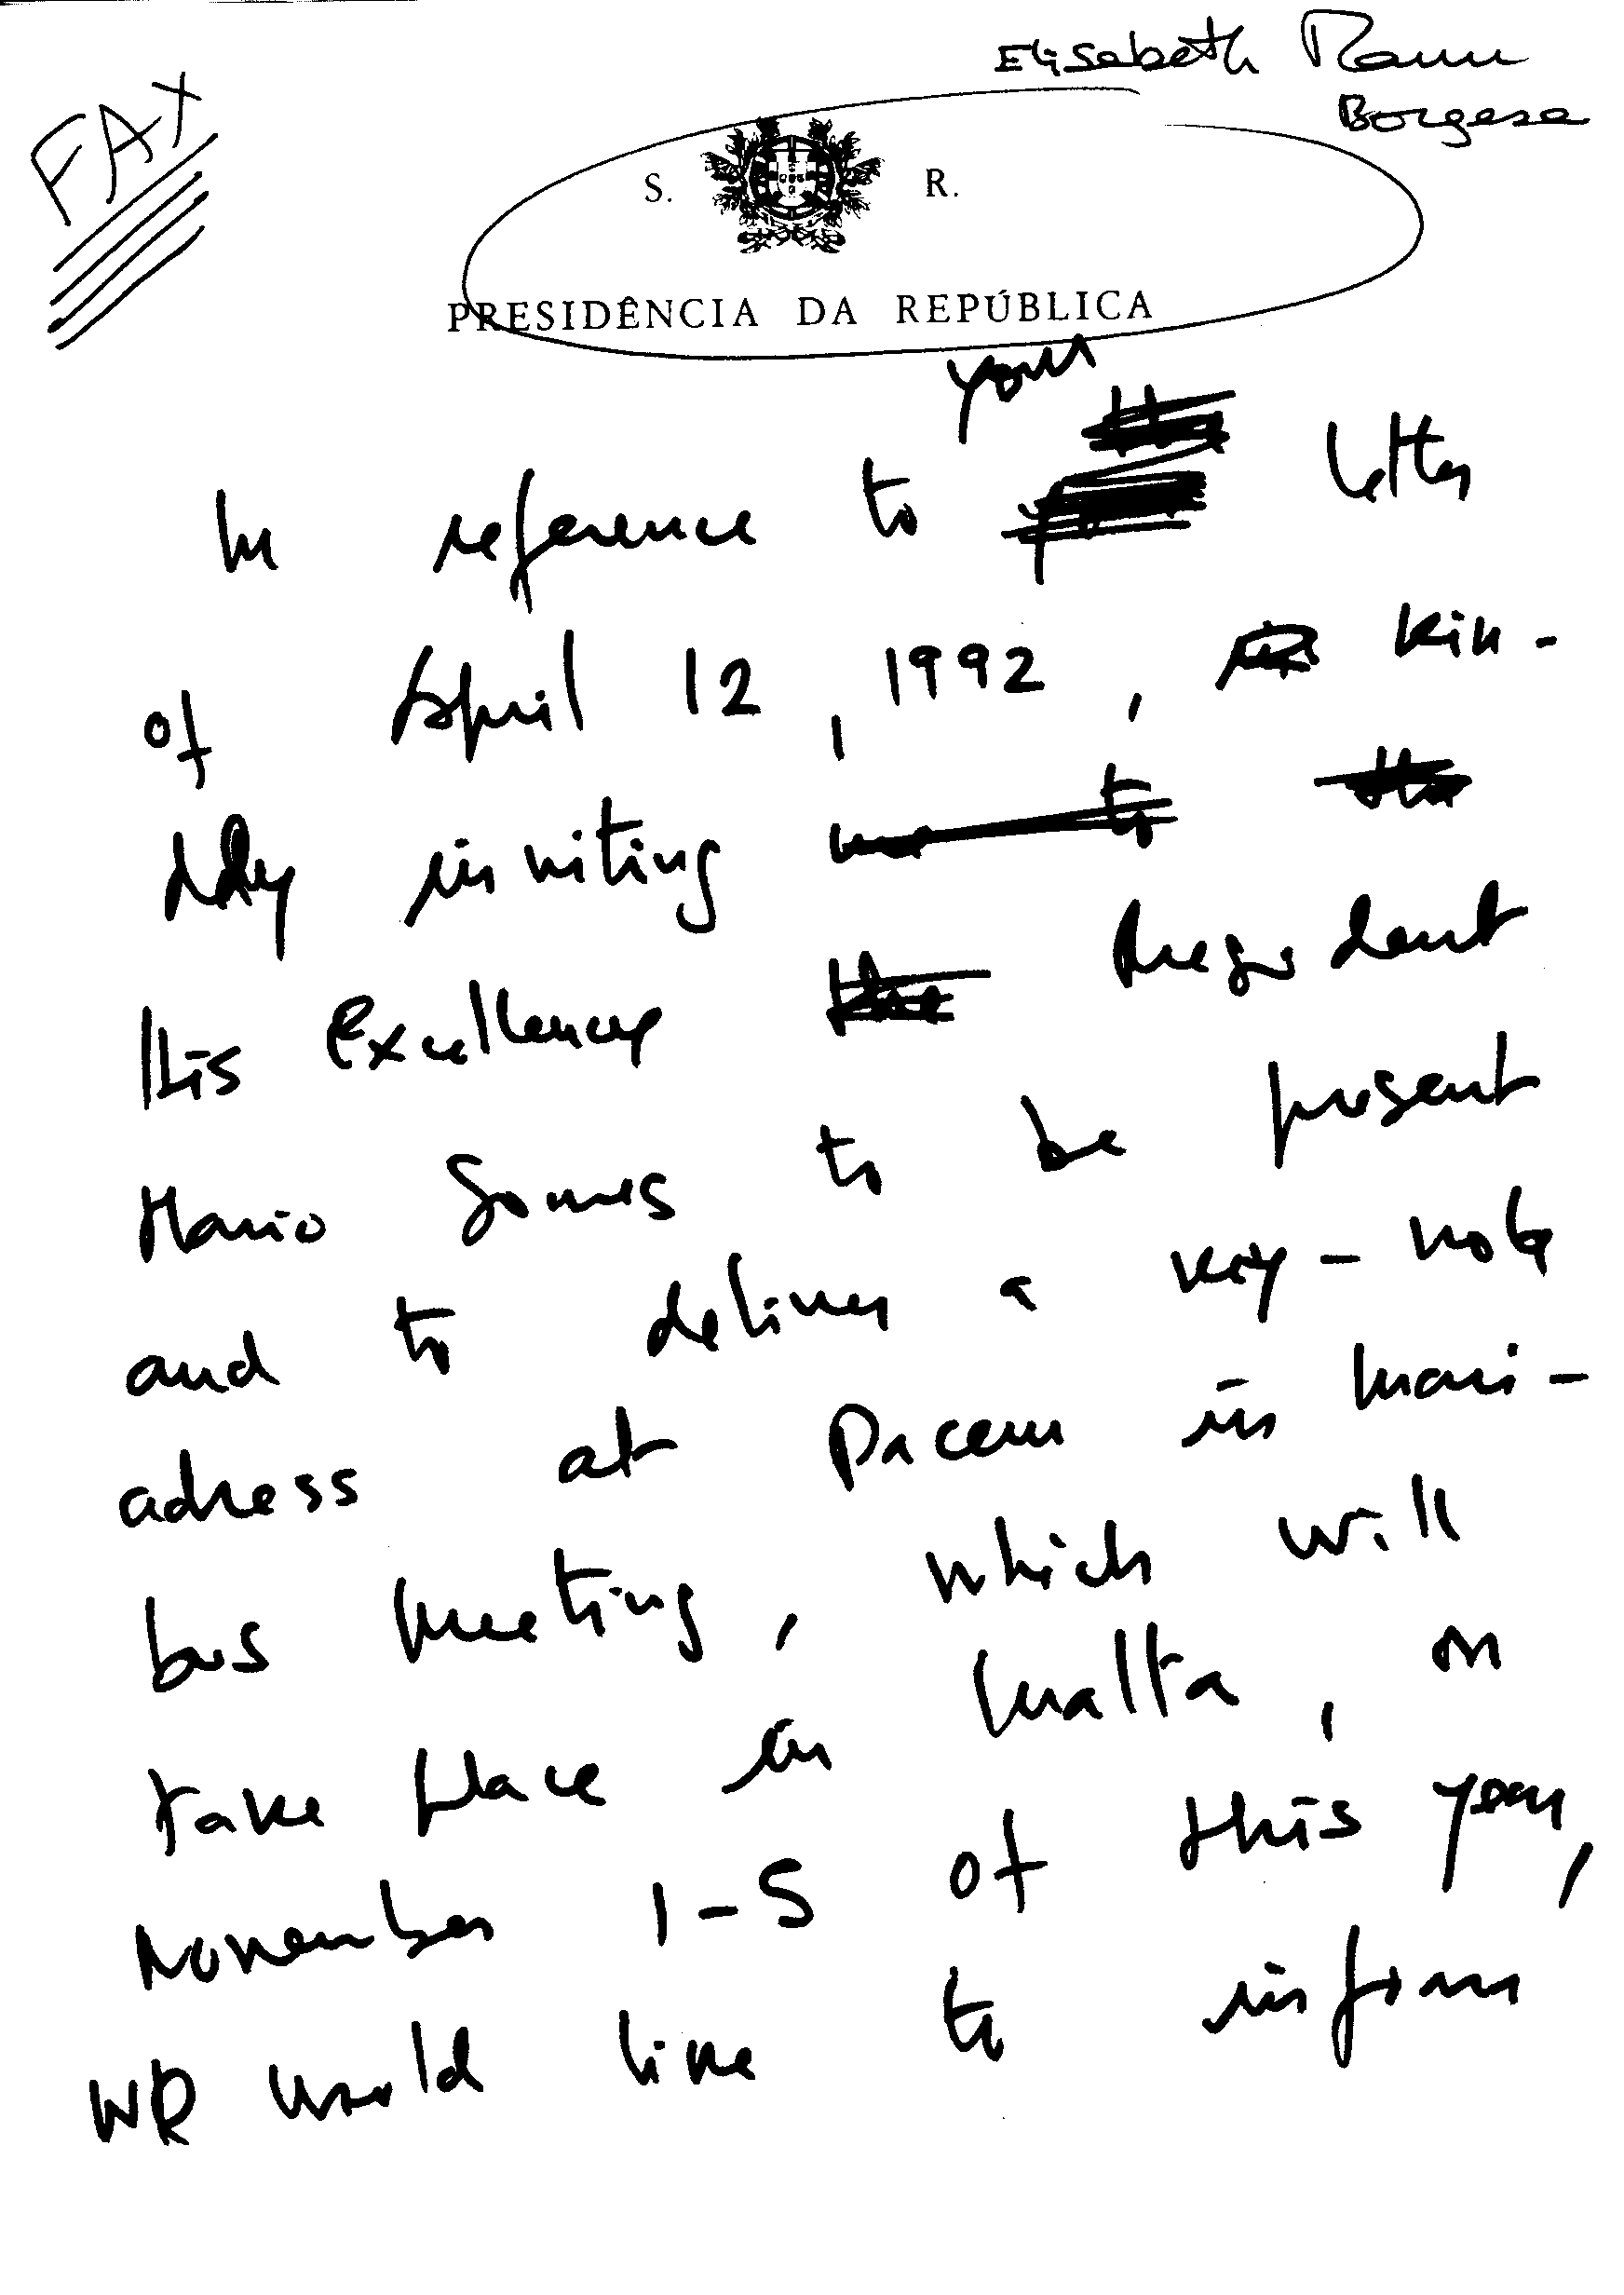 Elisabeth Mann
Borgese
FAX
S. R.
PRESIDÊNCIA DA REPÚBLICA
your
In reference to letter
of April 12, 1992, kin-
dly inviting me to the
His Excellency the President
Mario Soares to be present
and to deliver a key-note
adress at Pacem in Mari-
bus meeting, which will
take place in Malta, on
November 1-5 of this year,
we would like to inform